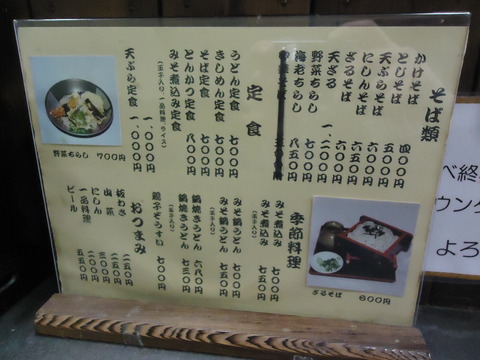 そば類
かけそば 四〇〇円
とじそば 五〇〇円
天ぷらそば
にしんそば 六〇〇円
ざるそば 六〇〇円
天ざる 一、二〇〇円
野菜ちらし 七〇〇円
海老ちらし 八五〇円
定食
うどん定食 七〇〇円
きしめん定食 七〇〇円
そば定食 七〇〇円
とんかつ定食 八〇〇円
みそ煮込み定食 一、〇〇〇円
(玉子入り、一品料理、ライス)
天ぷら定食 一、〇〇〇円
野菜ちらし 700円
季節料理
みそ煮込み 七〇〇円
みそ煮込み 七五〇円
(玉子入り)
みそ鍋うどん 七〇〇円
みそ鍋うどん 七五〇円
(玉子入り)
鍋焼きうどん 六八〇円
鍋焼きうどん 七三〇円
(玉子入り)
親子ぞうすい 七〇〇円
おつまみ
板わさ 二五〇円
山菜 二五〇円
にしん 三〇〇円
一品料理 二〇〇円
ビール 五五〇円
ざるそば 600円
べ終
ウンタ
よろ